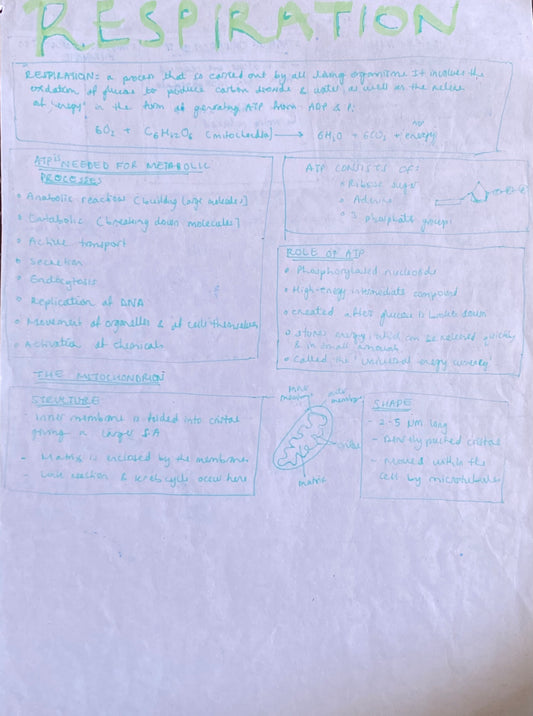 RESPIRATION
RESPIRATION: a process that is carried out by all living organisms. It involves the
oxidation of glucose to produce carbon dioxide & water, as well as the release
of 'energy' in the form of generating ATP from ADP & Pi
6O2 + C6H12O6 (mitochondria) → 6H2O + 6CO2 + energy
ATP is NEEDED FOR METABOLIC
PROCESSES
Anabolic reaction (building large molecules)
Catabolic (breaking down molecules)
Active transport
Secretion
Endocytosis
Replication of DNA
Movement of organelles & of cells themselves
Activation of chemicals
ATP CONSISTS OF:
Ribose sugar
Adenine
3 phosphate groups
ROLE OF ATP
Phosphorylated nucleotide
High-energy intermediate compound
created after glucose is broken down
stores energy, which can be released quickly
& in small amounts
Called the 'universal energy currency'
THE MITOCHONDRION
STRUCTURE
- Inner membrane is folded into cristae
giving a larger S.A
- Matrix is enclosed by the membrane
- Link reaction & krebs cycle occur here
inner
membrane
outer
membrane
matrix
SHAPE
- 2-5 μm long
- Densely packed cristae
- Moved within the
cell by microtubules